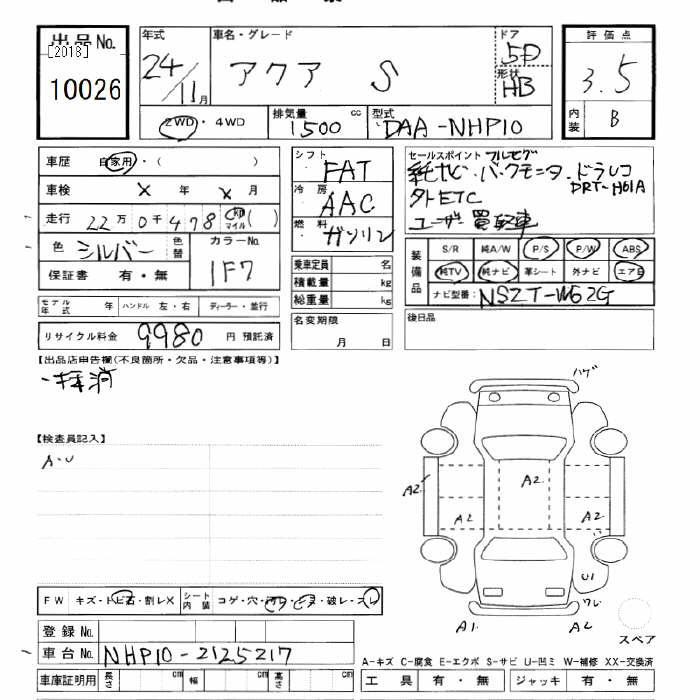 出品No.
[2018]
10026
年式
24/11月
車名・グレード
アクア S
ドア
5D
形状
HB
評価点
3.5
内装
B
2WD・4WD
排気量
1500 cc
型式
DAA-NHP10
車歴 自家用・( )
車検 X 年 X 月
走行 22万0千478 km マイル ( )
色 シルバー 色替
カラーNo.
1F7
保証書 有・無
モデル年式 年 ハンドル 左・右 ディーラー・並行
リサイクル料金 9980 円 預託済
シフト
FAT
冷房
AAC
燃料
ガソリン
乗車定員 名
積載量 kg
総重量 kg
名変期限
月 日
セールスポイント フルセグ
純ナビ・バックモニタ・ドラレコ
DRT-H61A
外ETC
ユーザー買取車
装備品
S/R 純A/W P/S P/W ABS
純TV 純ナビ 革シート 外ナビ エアB
ナビ型番: NSZT-W62G
後日品
【出品店申告欄(不良箇所・欠品・注意事項等)】
一抹消
【検査員記入】
A・U
FW キズ・トビ石・割レX シート内装 コゲ・穴・汚レ・シミ・破レ・スレ
登録No.
車台No. NHP10-2125217
車庫証明用 長さ cm 幅 cm 高さ cm
ハゲ
A2
A2
A2
A2
U1
ワレ
A1
AL
スペア
A-キズ C-腐食 E-エクボ S-サビ U-凹ミ W-補修 XX-交換済
工具 有・無 ジャッキ 有・無